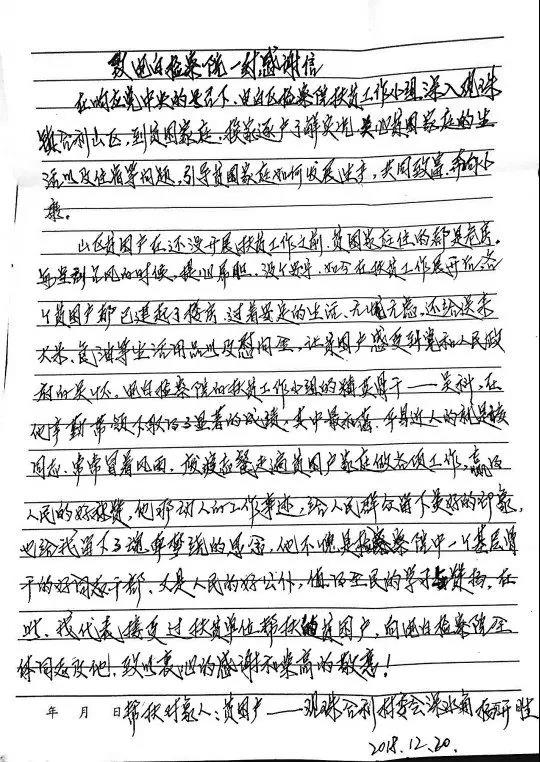 致电白检察院一封感谢信
在响应党中央的号召下、电白区检察院扶贫工作小组、深入观珠
镇合利山区,到贫困家庭,挨家逐户了解实况,关心贫困家庭的生
活以及住宿等问题,引导贫困家庭如何发展生产,共同致富,奔向小
康。
山区贫困户在还没开展扶贫工作之前,贫困家庭住的都是危房。
每当到台风的时候,提心吊胆,没个安宁。如今在扶贫工作展开后,各
个贫困户都已建起了楼房、过着安定的生活、无忧无虑,还给送来
大米、食油等生活用品以及慰问金,让贫困户感受到党和人民政
府的关怀。电白检察院的扶贫工作小组的精英骨干——吴科,在
他辛勤带领下取得了显著的成绩,其中最和蔼、平易近人的就是该
同志,常常冒着风雨,走遍贫困户家庭做各项工作,赢得
人民的好称赞,他那动人的工作事迹,给人民群众留下美好的印象,
也给我留下了难的思念,他不愧是检察院中一个基层肯
干的好同志干部、又是人民的好公仆,值得全民的学习与赞扬。在
此,我代表接受过扶贫单位帮扶的贫困户,向电白检察院全
体同志及他,致以衷心的感谢和崇高的敬意!
年 月 日 帮扶对象人:贫困户——观珠合利村委会深水角
2018.12.20.